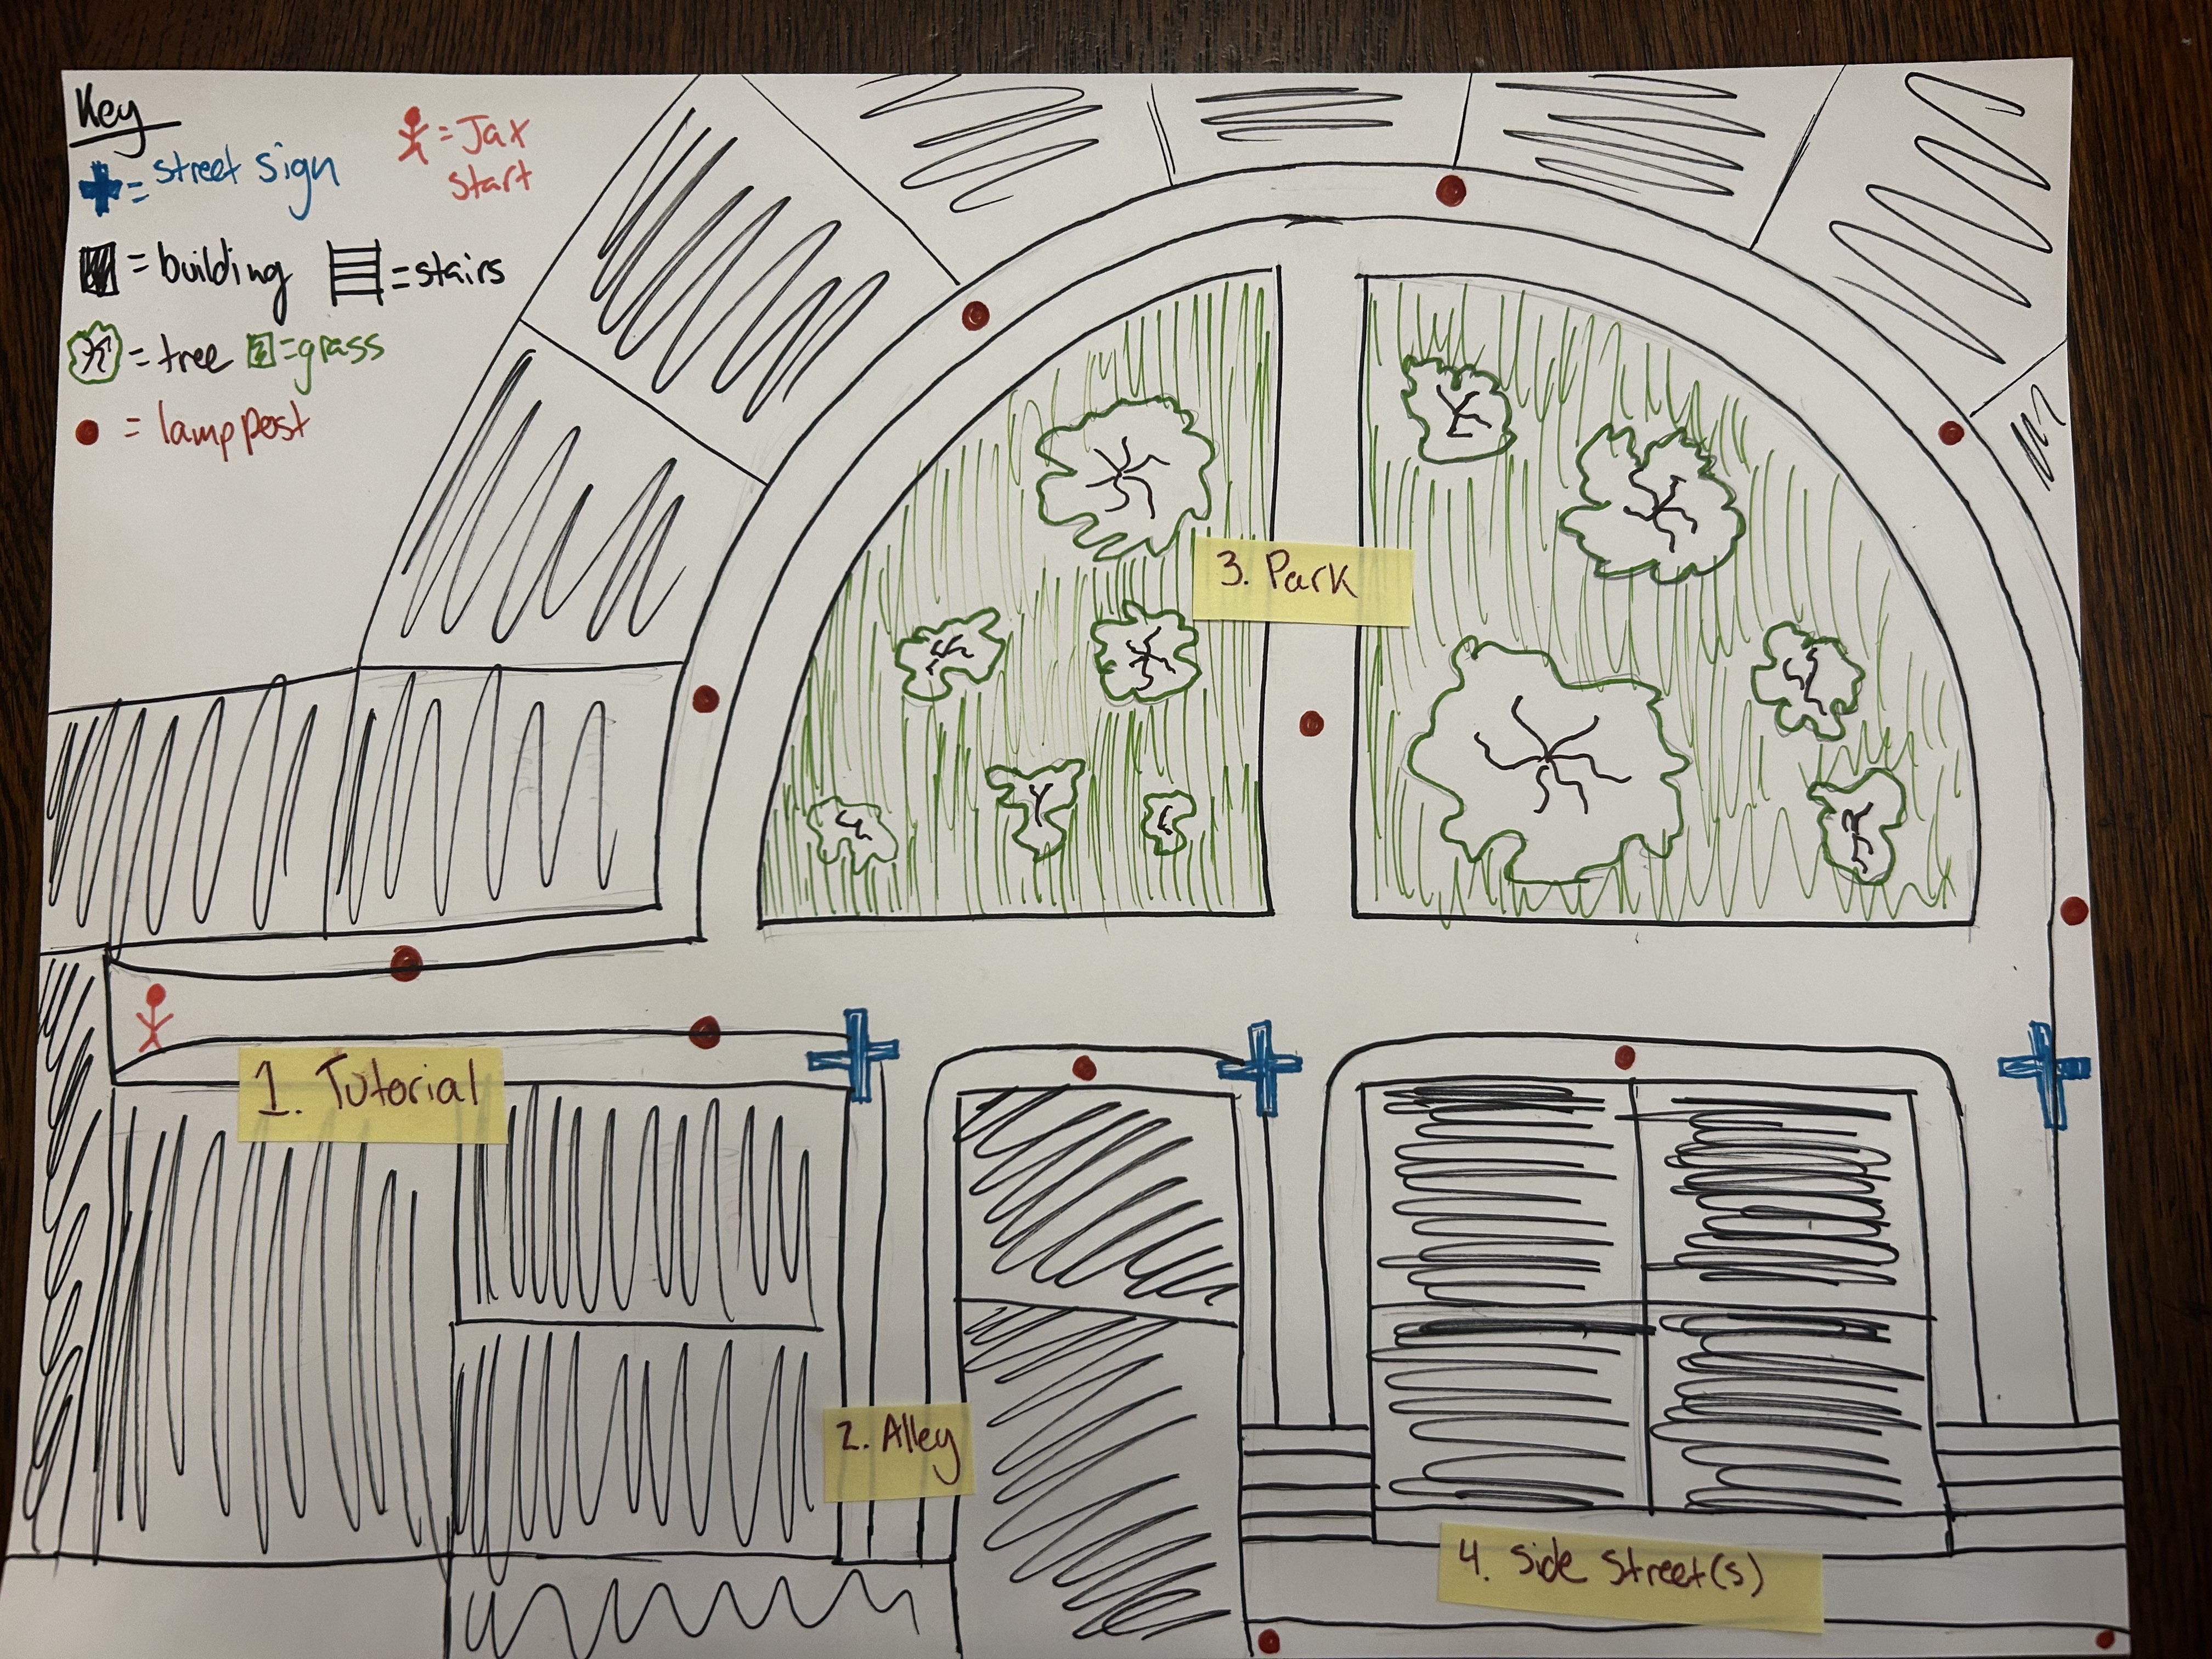 Key
= street sign
= Jax
start
= building
= stairs
= tree
= grass
= lamp post
3. Park
1. Tutorial
2. Alley
4. Side Street(s)